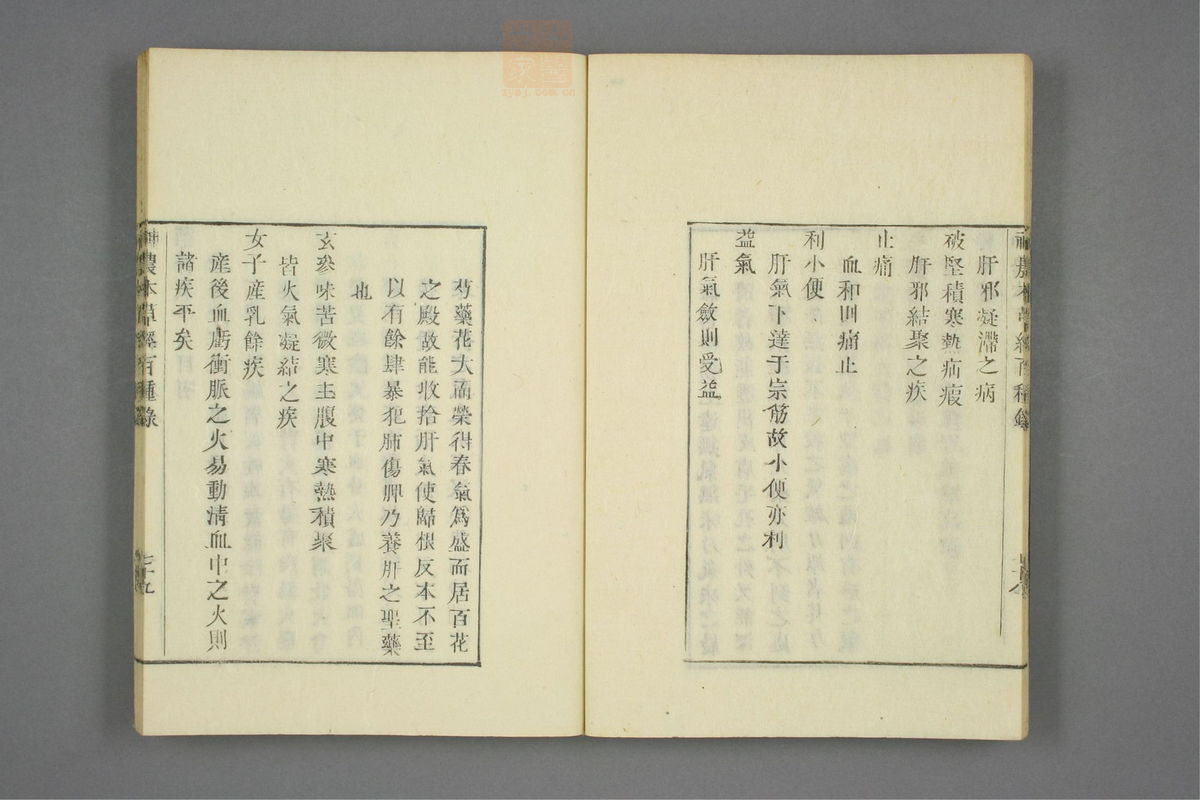 神農本草經百種錄
肝邪凝滯之病
破堅積寒熱疝瘕
肝邪結聚之疾
止痛
血和則痛止
利小便
肝氣下達于宗筋故小便亦利
益氣
肝氣斂則受益
芍藥花大而榮得春氣爲盛而居百花
之殿故能收拾肝氣使歸根反本不至
以有餘肆暴犯肺傷脾乃養肝之聖藥
也
玄參味苦微寒主腹中寒熱積聚
皆火氣凝結之疾
女子產乳餘疾
產後血虧衝脈之火易動清血中之火則
諸疾平矣
神農本草經百種錄
七十五
zysj.com.cn